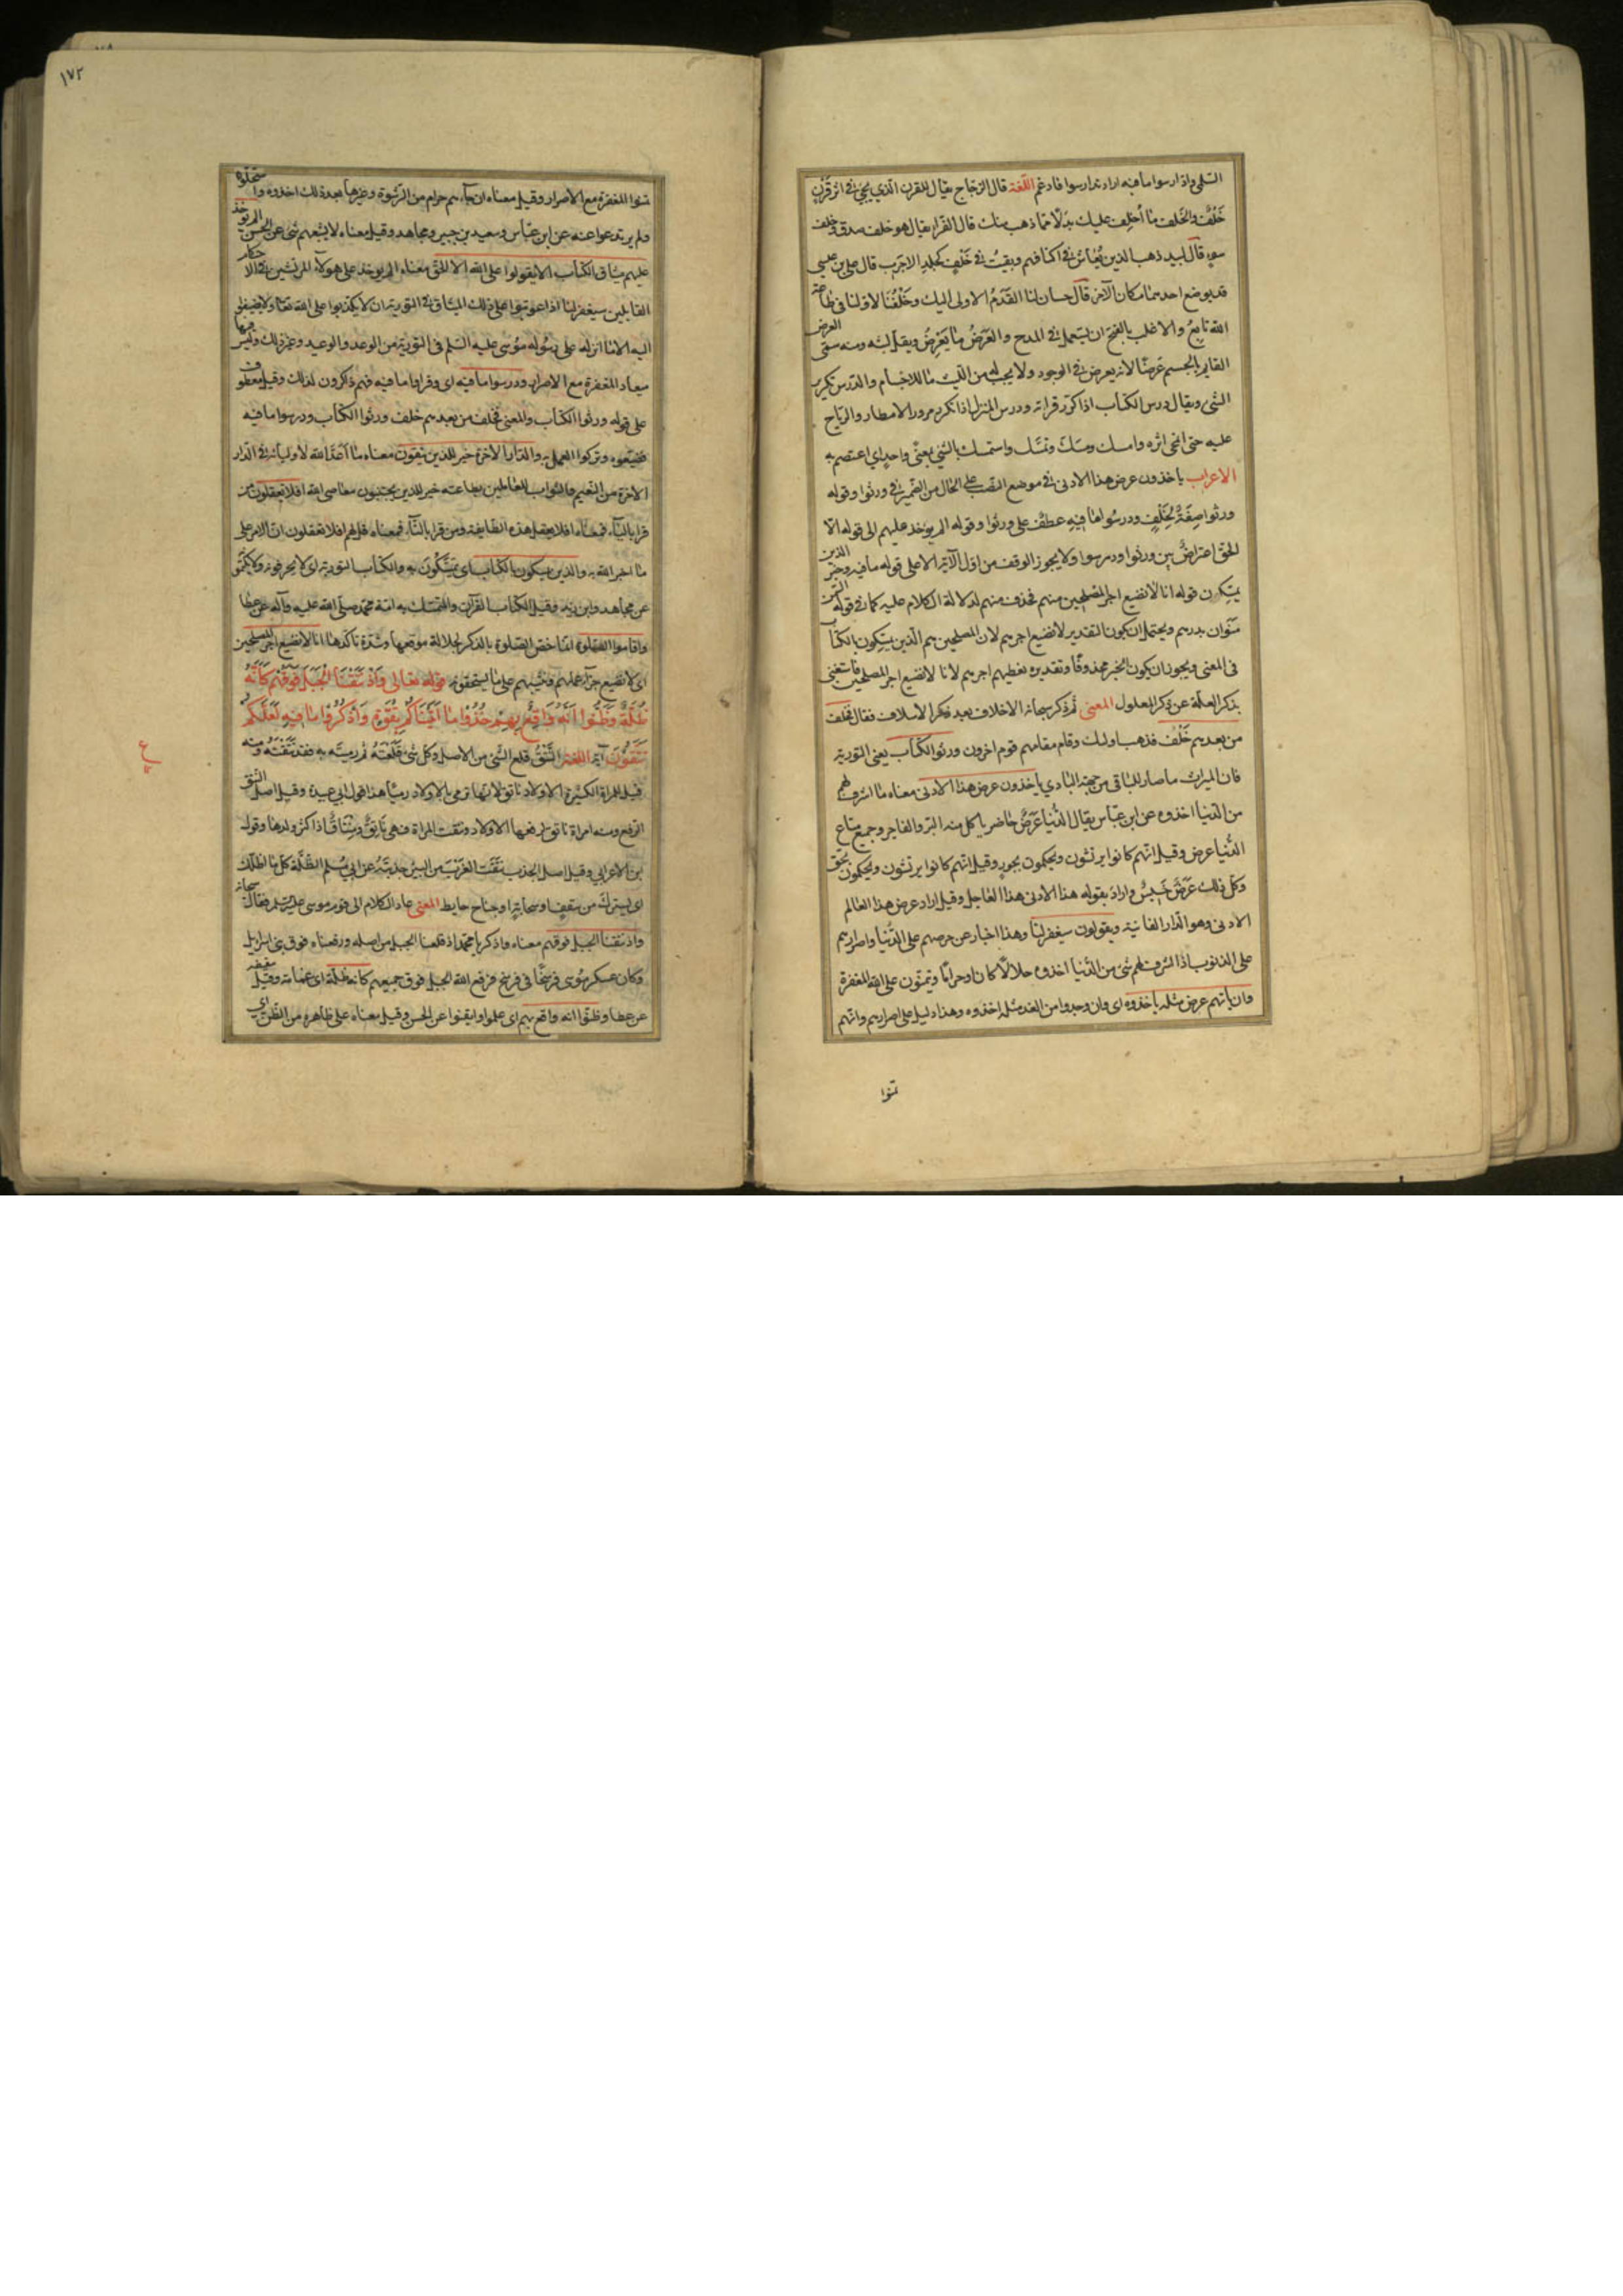 السلمي واذارسوا ما فيه اراد تدارسوا فادغم اللغة قال الزجاج يقال للقرن الذي يجئ في اثر قرن
خَلْفٌ والخلف ما أخلف عليك بدلًا مما ذهب منك قال الفرا يقال هو خلف صدق وخلف
سوء قال لبيد ذهب الذين يُعاش في اكنافهم وبقيت في خَلْفٍ كجلد الاجرب قال علي بن عيسى
قد يوضع احدهما مكان الآخر قال حسان لنا القَدَمُ الاولى اليك وخَلْفُنا لاولنا في طاعة
الله تابعُ والاغلب بالفتح ان يستعمل في المدح والعَرَضُ ما يَعْرِضُ ويقل لبثه ومنه سمى العرض
القايم بالجسم عَرَضًا لانه يعرض في الوجود ولا يجب له من اللبث ما للاجسام والدرس تكرير
الشئ ويقال درس الكتاب اذا كرّر قراته ودرس المنزل اذا تكرر مرور الامطار والرياح
عليه حتى انمحى اثره وامسك ومسّك وتمسّك واستمسك بالشئ بمعنًى واحدٍ اي اعتصم به
الاعراب ياخذون عرض هذا الادنى في موضع النصب على الحال من الضمير في ورثوا وقوله
ورثوا صِفَةٌ لِخَلْفٍ ودرسُوا مٰا فِيهِ عطفٌ على ورثوا وقوله الم يوخذ عليهم الى قوله الّا
الحق اعتراضٌ بين ورثوا ودرسوا ولا يجوز الوقف من اوّل الآية الا على قوله ما فيه وخبر الذين
يمسكون قوله انا لا نضيع اجر المصلحين منهم فحذف منهم لدلالة الكلام عليه كما في قوله السمن
منوان بدرهم ويحتمل ان يكون التقدير لا نضيع اجرهم لان المصلحين هم الّذين يمسكون بالكتاب
في المعنى ويجوز ان يكون الخبر محذوفًا وتقديره نعطيهم اجرهم لانا لا نضيع اجر المصلحين فاستغنى
بذكر العلّة عن ذكر المعلول المعنى ثم ذكر سبحانه الاخلاف بعد ذكر الاسلاف فقال فخلف
من بعدهم خَلْف فذهب اولئك وقام مقامهم قوم اخرون ورثوا الكتاب يعني التورية
فان الميراث ما صار للباقي من جهة البادي ياخذون عرض هذا الادنى معناه ما اشرف لهم
من الدنيا اخذوه عن ابن عبّاس يقال الدُّنيا عَرَضٌ حاضر ياكل منه البر والفاجر وجميع متاع
الدُّنيا عرض وقيل انّهم كانوا يرتشون ويحكمون بجورٍ وقيل انّهم كانوا يرتشون ويحكمون بحق
وكلّ ذلك عَرَضٌ خسيسٌ واراد بقوله هذا الادنى هذا العاجل وقيل اراد عرض هذا العالم
الادنى وهو الدار الفانية ويقولون سيغفر لنا وهذا اخبار عن حرصهم على الدُّنيا واصرارهم
على الذنوب اذا اشرف لهم شئ من الدُّنيا اخذوه حلالًا كان او حرامًا ويتمنّون على الله المغفرة
وان ياتهم عرض مثله ياخذوه اى وان وجدوا من الغد مثله اخذوه وهذا دليل على اصرارهم وانهم
تمنوا
١٧٢
تمنوا المغفرة مع الاصرار وقيل معناه ان جاءهم حرام من الرّشوة وغيرها بعد ذلك اخذوه واستحلّوه
ولم يرتدعوا عنه عن ابن عبّاس وسعيد بن جبير ومجاهد وقيل معناه لا يشبعهم شئ عن الحسن الم يوخذ
عليهم ميثاق الكتاب الا يقولوا على الله الا الحق معناه الم يوخذ على هولاء المرتشين في الاحكام
القايلين سيغفر لنا اذا عوتبوا على ذلك الميثاق في التورية ان لا يكذبوا على الله تعا ولا يضيفوا
اليه الا ما انزله على رسُوله موسى عليه السّلم في التورية من الوعد والوعيد وغير ذلك وليس فيها
ميعاد المغفرة مع الاصرار ودرسوا ما فيه اى وقراوا ما فيه فهم ذاكرون لذلك وقيل معطوف
على قوله ورثوا الكتاب والمعنى فخلف من بعدهم خلف ورثوا الكتاب ودرسوا ما فيه
فضيّعوه وتركوا العمل به والدّار الاخرة خير للذين يتقون معناه ما اَعَدَّ الله لاوليائه في الدّار
الآخرة من النّعيم والثواب للعاملين بطاعته خير للذين يجتنبون معاصى الله افلا تعقلون من
قرا بالياء فمعناه افلا يعقل هذه الطّايفة ومن قرا بالتّاء فمعناه قل لهم افلا تعقلون انّ الامر على
ما اخبر الله به والذين يمسكون بالكتاب اى يتمَسَّكُونَ به والكتاب التورية اى لا يحرفونه ولا يكتمونه
عن مجاهد وابن زيد وقيل الكتاب القرآن والمتمسك به امّة محمّد صلّى الله عليه وآله عن عطا
واقاموا الصّلوة انما خصّ الصّلوة بالذكر لجلالة موقعها وشدّة تاكدها انا لا نضيع اجر المصلحين
اى لا نضيع جزآء عملهم ونثيبهم على ما يستحقّونه قوله تعالى وَاِذْ نَتَقْنَا الْجَبَلَ فَوْقَهُمْ كَأَنَّهُ
ظُلَّةٌ وَظَنُّوا أَنَّهُ وَاقِعٌ بِهِمْ خُذُوا مٰا آتَيْنٰاكُمْ بِقُوَّةٍ وَاذْكُرُوا مٰا فِيهِ لَعَلَّكُمْ
تَتَّقُونَ آية اللغة النَّتْقُ قلع الشّئ من الاصل وكلّ شئ قَلَعْتَهُ ثم رميتَ به فقد نَتَقْتَهُ ومنه
قيل للمراة الكثيرة الاولاد ناتق لانّها ترمى بالاولاد رميًا هذا قول ابي عبيدة وقيل اصل النتق
الرّفع ومنه امراة ناتق لرفعها الاولاد ونتقت المراة فهي نَاتِقٌ ومِنْتَاقٌ اذا كثر ولدها وقول
بن الاعرابي وقيل اصله الجذب نَتَقْتُ الغَرْبَ من البئر جذبتُهُ عن ابي مُسلم الظّلّة كلّ ما اظلّك
اى سترك من سقفٍ او سحابةٍ او جناح حايط المعنى عاد الكلام الى قوم موسى فقال سبحانه
واذ نتقنا الجبل فوقهم معناه واذكر يا محمّد اذ قلعنا الجبل من اصله ورفعناه فوق بنى اسرايل
وكان عسكر مُوسى فرسخًا في فرسخ فرفع الله الجبل فوق جميعهم كانه ظلّة اى غمامة وقيل سقيفة
عن عطا وظنّوا انه واقع بهم اى علموا وايقنوا عن الحسن وقيل معناه على ظاهره من الظّن اي
ع